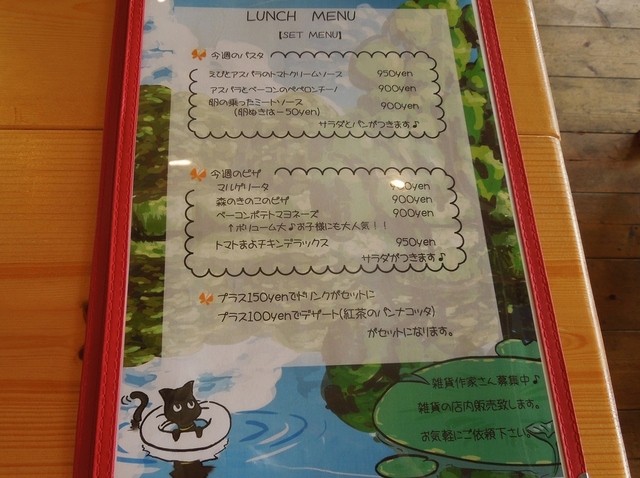 LUNCH MENU
【SET MENU】
今週のパスタ
えびとアスパラのトマトクリームソース 950yen
アスパラとベーコンのペペロンチーノ 900yen
卵の乗ったミートソース 900yen
(卵ぬきは-50yen)
サラダとパンがつきます♪
今週のピザ
マルゲリータ
森のきのこのピザ 900yen
ベーコンポテトマヨネーズ 900yen
↑ボリューム大♪お子様にも大人気!!
トマトまよチキンデラックス 950yen
サラダがつきます♪
プラス150yenでドリンクがセットに
プラス100yenでデザート(紅茶のパンナコッタ)
がセットになります。
雑貨作家さん募集中♪
雑貨の店内販売致します。
お気軽にご依頼下さい